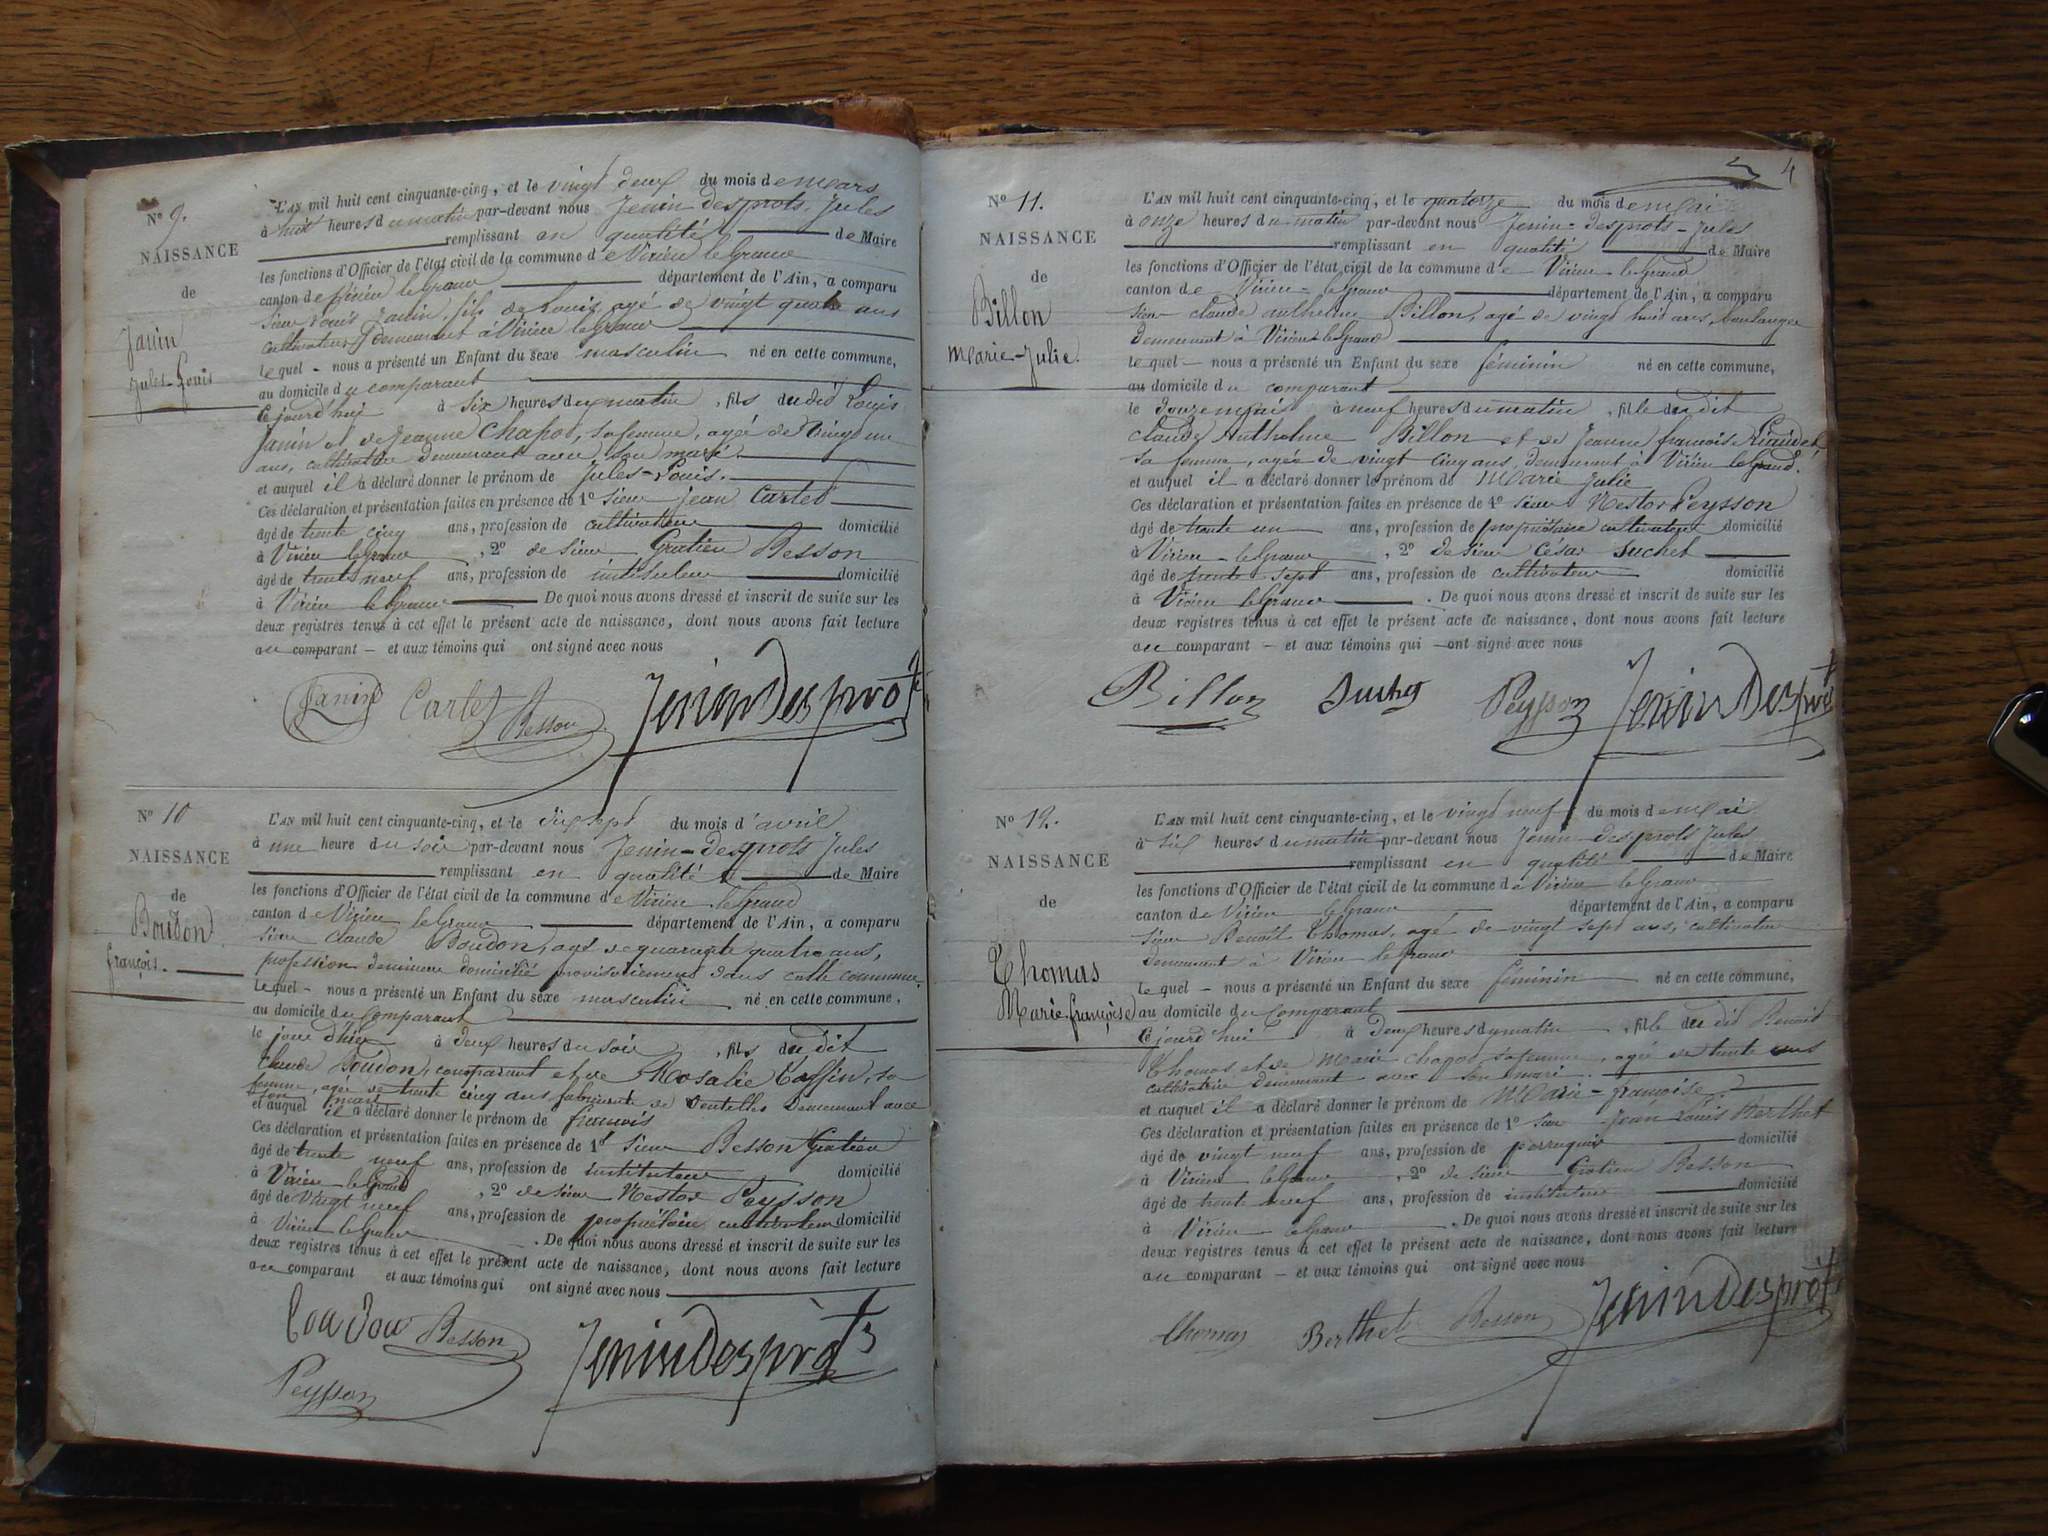 N° 9.
NAISSANCE
de
Janin
Jules-Louis
L'AN mil huit cent cinquante-cinq, et le vingt deux du mois de mars
à huit heures du matin par-devant nous Jenin-desprots, Jules
remplissant en qualité de Maire
les fonctions d'Officier de l'état civil de la commune de Virieu le Grand
canton de Virieu le Grand département de l'Ain, a comparu
sieur Louis Janin, fils de Louis, agé de vingt quatre ans
cultivateur, demeurant à Virieu le Grand
lequel - nous a présenté un Enfant du sexe masculin né en cette commune,
au domicile du comparant
ce jourd'hui à six heures du matin, fils du dit Louis
Janin et de Jeanne Chapot, sa femme, agée de vingt un
ans, cultivatrice demeurant avec son mari
et auquel il a déclaré donner le prénom de Jules-Louis.
Ces déclaration et présentation faites en présence de 1° sieur Jean Cartet
âgé de trente cinq ans, profession de cultivateur domicilié
à Virieu le Grand, 2° de sieur Gratien Besson
âgé de trente neuf ans, profession de instituteur domicilié
à Virieu le Grand. De quoi nous avons dressé et inscrit de suite sur les
deux registres tenus à cet effet le présent acte de naissance, dont nous avons fait lecture
au comparant - et aux témoins qui ont signé avec nous
Janin Cartet Besson Jenin Desprots
N° 10
NAISSANCE
de
Boudon
françois.
L'AN mil huit cent cinquante-cinq, et le dix sept du mois d'avril
à une heure du soir par-devant nous Jenin-desprots Jules
remplissant en qualité de Maire
les fonctions d'Officier de l'état civil de la commune de Virieu le Grand
canton de Virieu le Grand département de l'Ain, a comparu
sieur Claude Boudon, agé de quarante quatre ans,
profession de mineur domicilié provisoirement dans cette commune.
lequel - nous a présenté un Enfant du sexe masculin né en cette commune,
au domicile du comparant
le jour d'hier à deux heures du soir, fils du dit
Claude Boudon, comparant et de Rosalie, sa
femme, agée de trente cinq ans fabricante de dentelles demeurant avec
son mari
et auquel il a déclaré donner le prénom de françois
Ces déclaration et présentation faites en présence de 1° sieur Besson Gratien
âgé de trente neuf ans, profession de instituteur domicilié
à Virieu le Grand, 2° de sieur Nestor Peysson
âgé de vingt neuf ans, profession de propriétaire cultivateur domicilié
à Virieu le Grand. De quoi nous avons dressé et inscrit de suite sur les
deux registres tenus à cet effet le présent acte de naissance, dont nous avons fait lecture
au comparant et aux témoins qui ont signé avec nous
Boudon Besson Jenin Desprots
Peysson
4
N° 11.
NAISSANCE
de
Billon
Marie-Julie.
L'AN mil huit cent cinquante-cinq, et le quatorze du mois de mai
à onze heures du matin par-devant nous Jenin-desprots-Jules
remplissant en qualité de Maire
les fonctions d'Officier de l'état civil de la commune de Virieu le Grand
canton de Virieu-le Grand département de l'Ain, a comparu
sieur claude anthelme Billon, agé de vingt huit ans, boulanger
demeurant à Virieu le Grand
lequel - nous a présenté un Enfant du sexe féminin né en cette commune,
au domicile du comparant
le douze mai à neuf heures du matin, fille du dit
Claude Anthelme Billon et de Jeanne françoise
sa femme, agée de vingt cinq ans, demeurant à Virieu le Grand.
et auquel il a déclaré donner le prénom de Marie Julie
Ces déclaration et présentation faites en présence de 1° sieur Nestor Peysson
âgé de trente un ans, profession de propriétaire cultivateur domicilié
à Virieu-le Grand, 2° de sieur César Suchet
âgé de trente sept ans, profession de cultivateur domicilié
à Virieu le Grand. De quoi nous avons dressé et inscrit de suite sur les
deux registres tenus à cet effet le présent acte de naissance, dont nous avons fait lecture
au comparant - et aux témoins qui - ont signé avec nous
Billon Suchet Peysson Jenin Desprots
N° 12.
NAISSANCE
de
Thomas
Marie françoise
L'AN mil huit cent cinquante-cinq, et le vingt neuf du mois de mai
à six heures du matin par-devant nous Jenin-desprots Jules
remplissant en qualité de Maire
les fonctions d'Officier de l'état civil de la commune de Virieu le Grand
canton de Virieu le Grand département de l'Ain, a comparu
sieur Benoit Thomas, agé de vingt sept ans, cultivateur
demeurant à Virieu le Grand
lequel - nous a présenté un Enfant du sexe féminin né en cette commune,
au domicile du comparant
ce jourd'hui à deux heures du matin, fille du dit Benoit
Thomas, et de Marie chapot sa femme, agée de trente ans
cultivatrice demeurant avec son mari.
et auquel il a déclaré donner le prénom de Marie-françoise.
Ces déclaration et présentation faites en présence de 1° sieur Jean Louis Berthet
âgé de vingt neuf ans, profession de perruquier domicilié
à Virieu le Grand, 2° de sieur Gratien Besson
âgé de trente neuf ans, profession de instituteur domicilié
à Virieu le Grand. De quoi nous avons dressé et inscrit de suite sur les
deux registres tenus à cet effet le présent acte de naissance, dont nous avons fait lecture
au comparant - et aux témoins qui ont signé avec nous
Thomas Berthet Besson Jenin Desprots